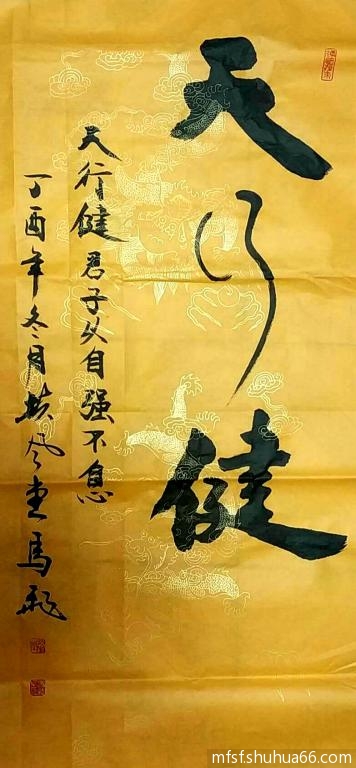 天行健
天行健君子以自强不息
丁酉年冬月风堂马
mfsfshuhua66.com